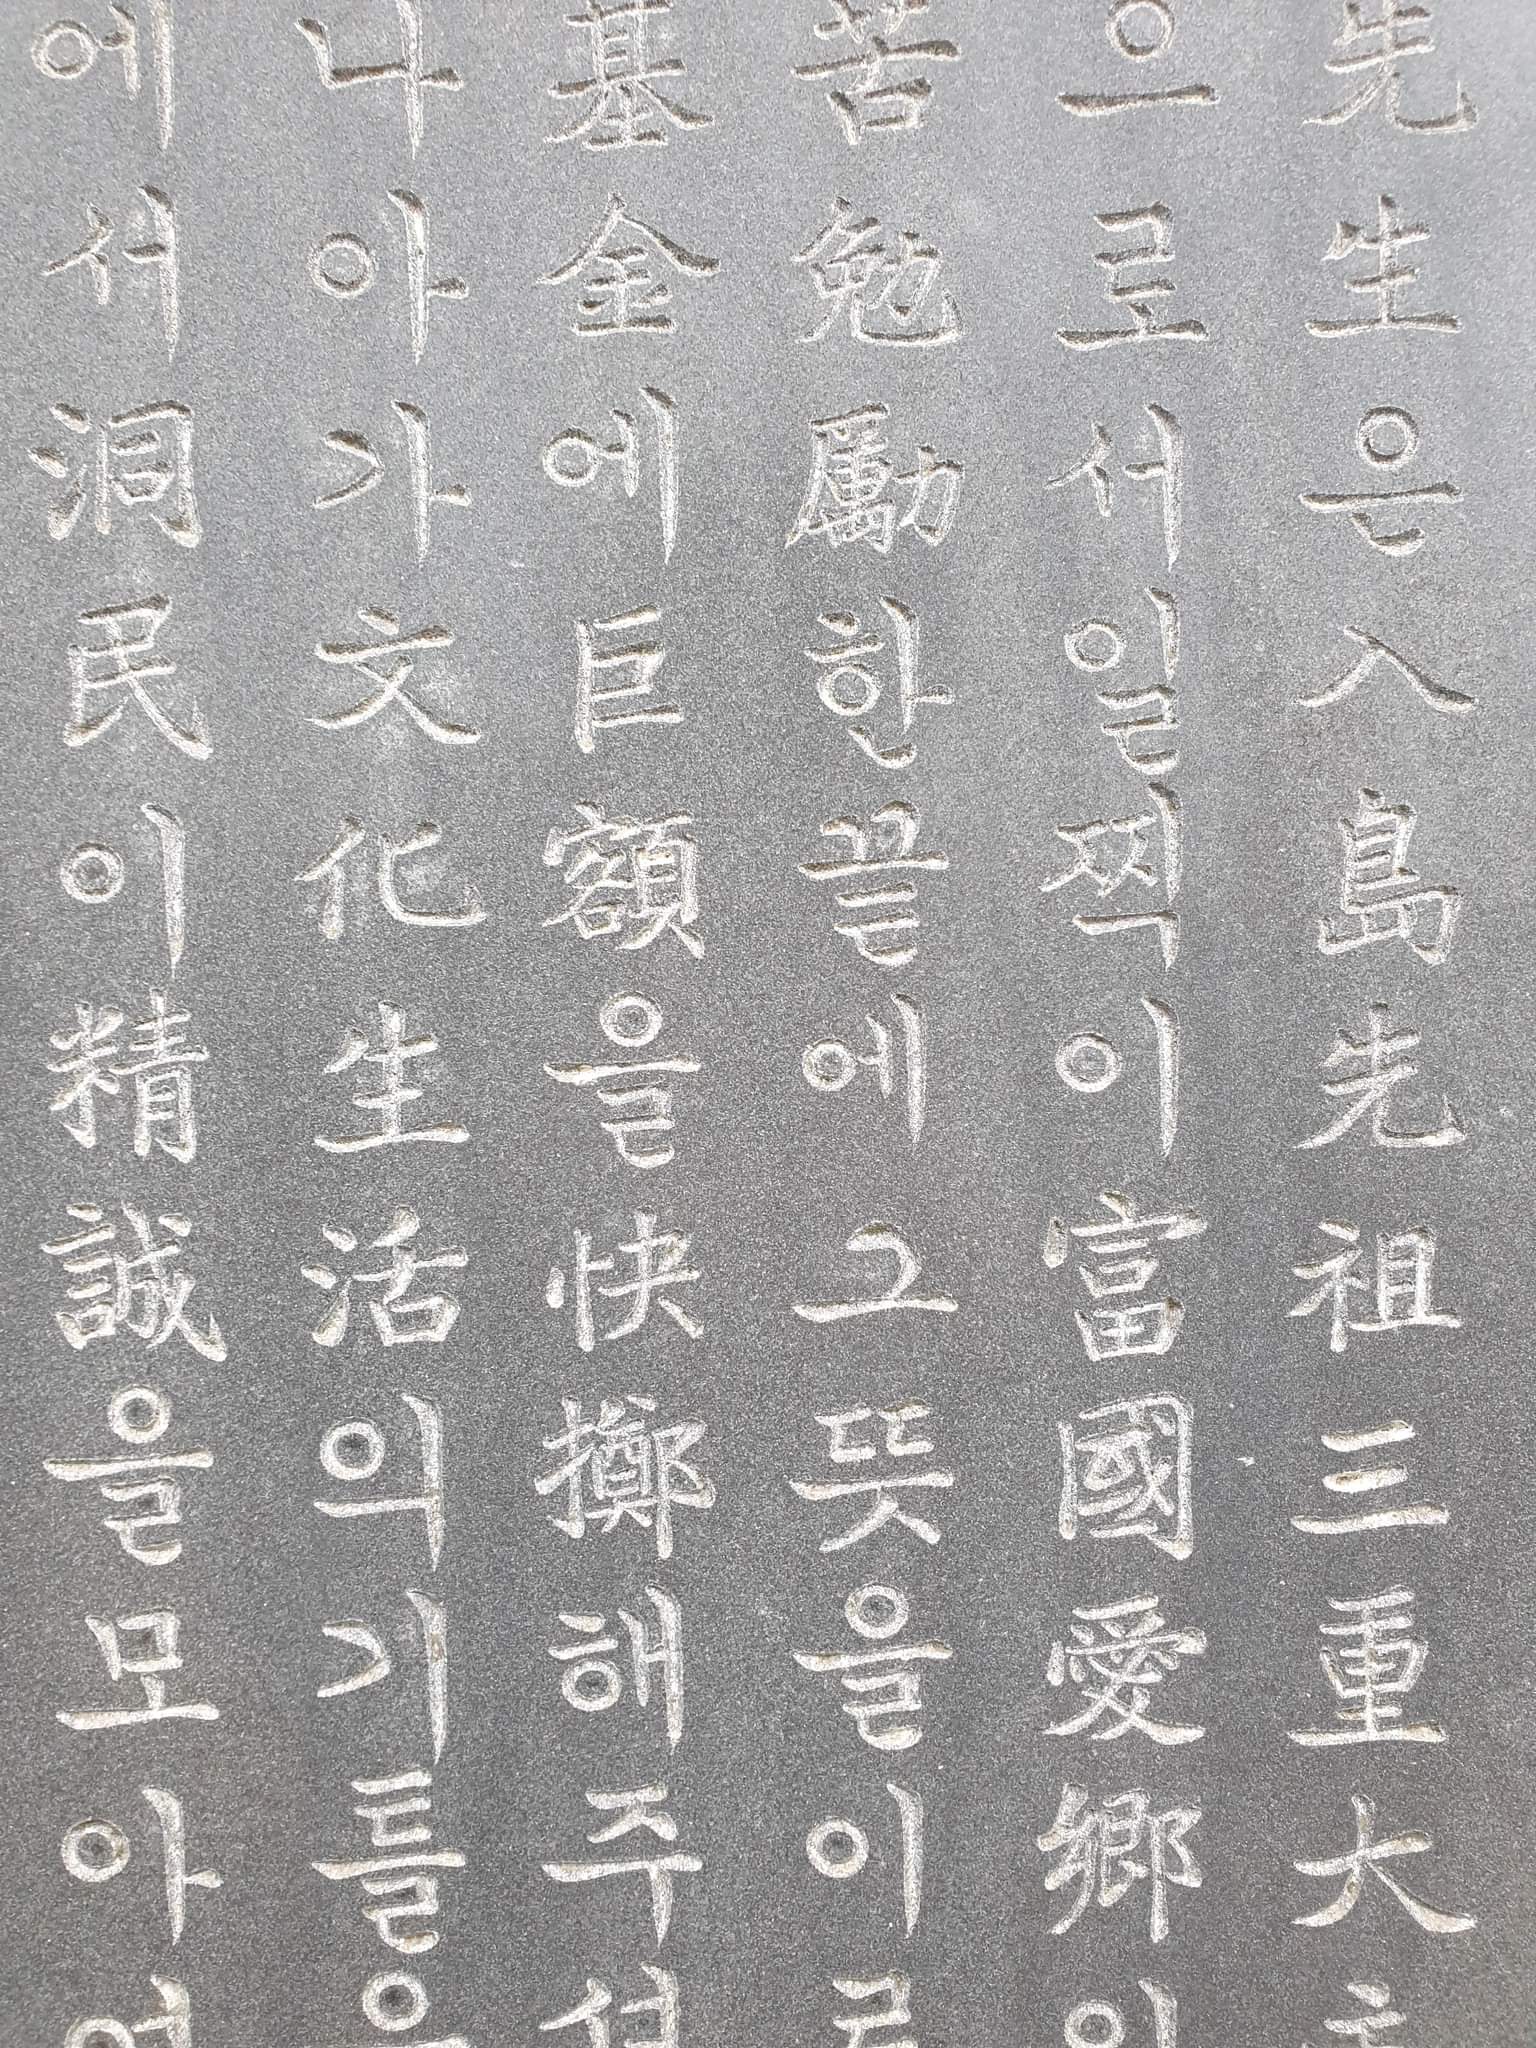 先生은入島先祖三重大
으로서일찍이富國愛鄉
苦勉勵한끝에그뜻을이
基金에巨額을快擲해주셨
나아가文化生活의기틀을
에서洞民이精誠을모아